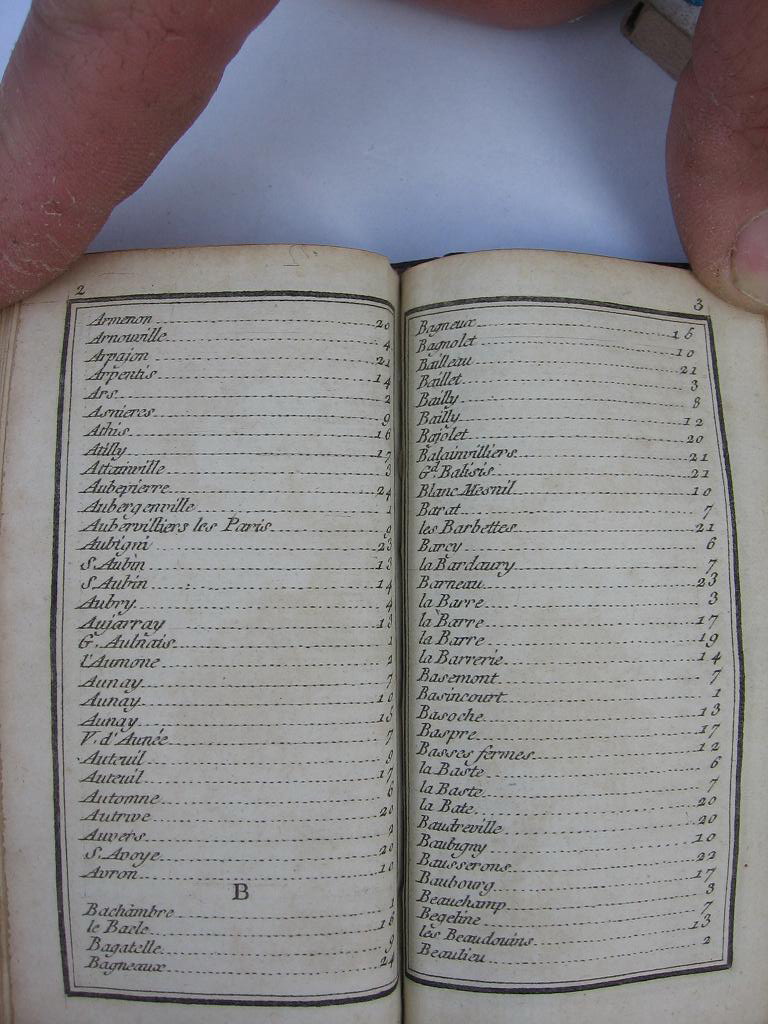 2
Armenon 20
Arnouville 4
Arpajon 21
Arpentis 14
Ars 2
Asnieres 9
Athis 16
Atilly 17
Attainville 3
Aubepierre 24
Aubergenville 1
Aubervilliers les Paris 9
Aubigni 23
S. Aubin 13
S. Aubin 14
Aubry 4
Aujarray 13
G. Aulnais 1
l'Aumone 2
Aunay 7
Aunay 10
Aunay 15
V. d'Aunée 7
Auteuil 9
Auteuil 17
Automne 6
Autrive 20
Auvers 2
S. Avoye 20
Avron 10
B
Bachambre 1
le Bacle 18
Bagatelle 9
Bagneaux 24
3
Bagneux 15
Bagnolet 10
Bailleau 21
Baillet 3
Bailly 8
Bailly 12
Bajolet 20
Balainvilliers 21
Gd. Balisis 21
Blanc Mesnil 10
Barat 7
les Barbettes 21
Barcy 6
la Bardaury 7
Barneau 23
la Barre 3
la Barre 17
la Barre 19
la Barrerie 14
Basemont 7
Basincourt 1
Basoche 13
Baspre 17
Basses fermes 12
la Baste 6
la Baste 7
la Bate 20
Baudreville 20
Baubigny 10
Bausserons 22
Baubourg 17
Beauchamp 3
Begeline 7
les Beaudouins 13
Beaulieu 2